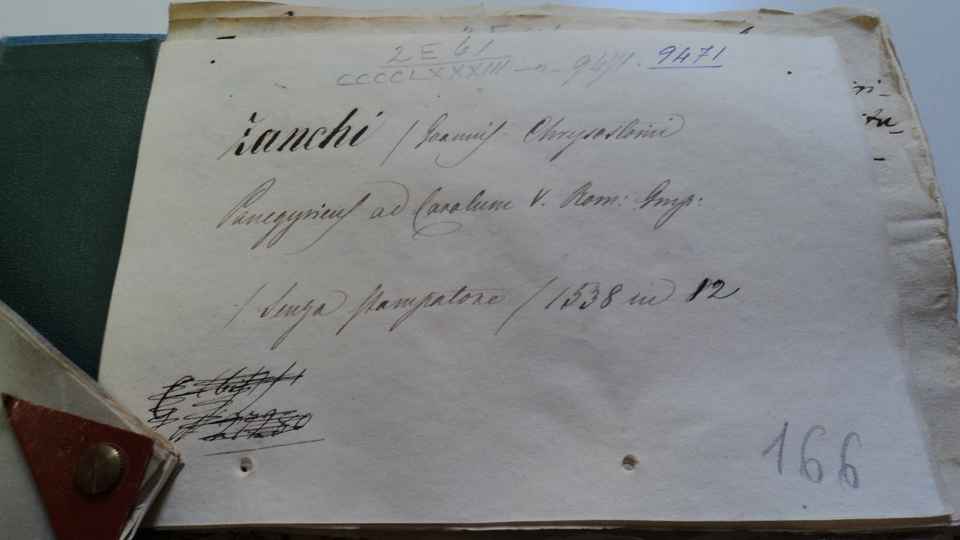 2 E 61
CCCCLXXXIII - n - 9471. 9471
Zanchi / Joannis Chrysostomi
Panegyricus ad Carolum V. Rom: Imp:
/ Senza stampatore / 1538 in 12
166